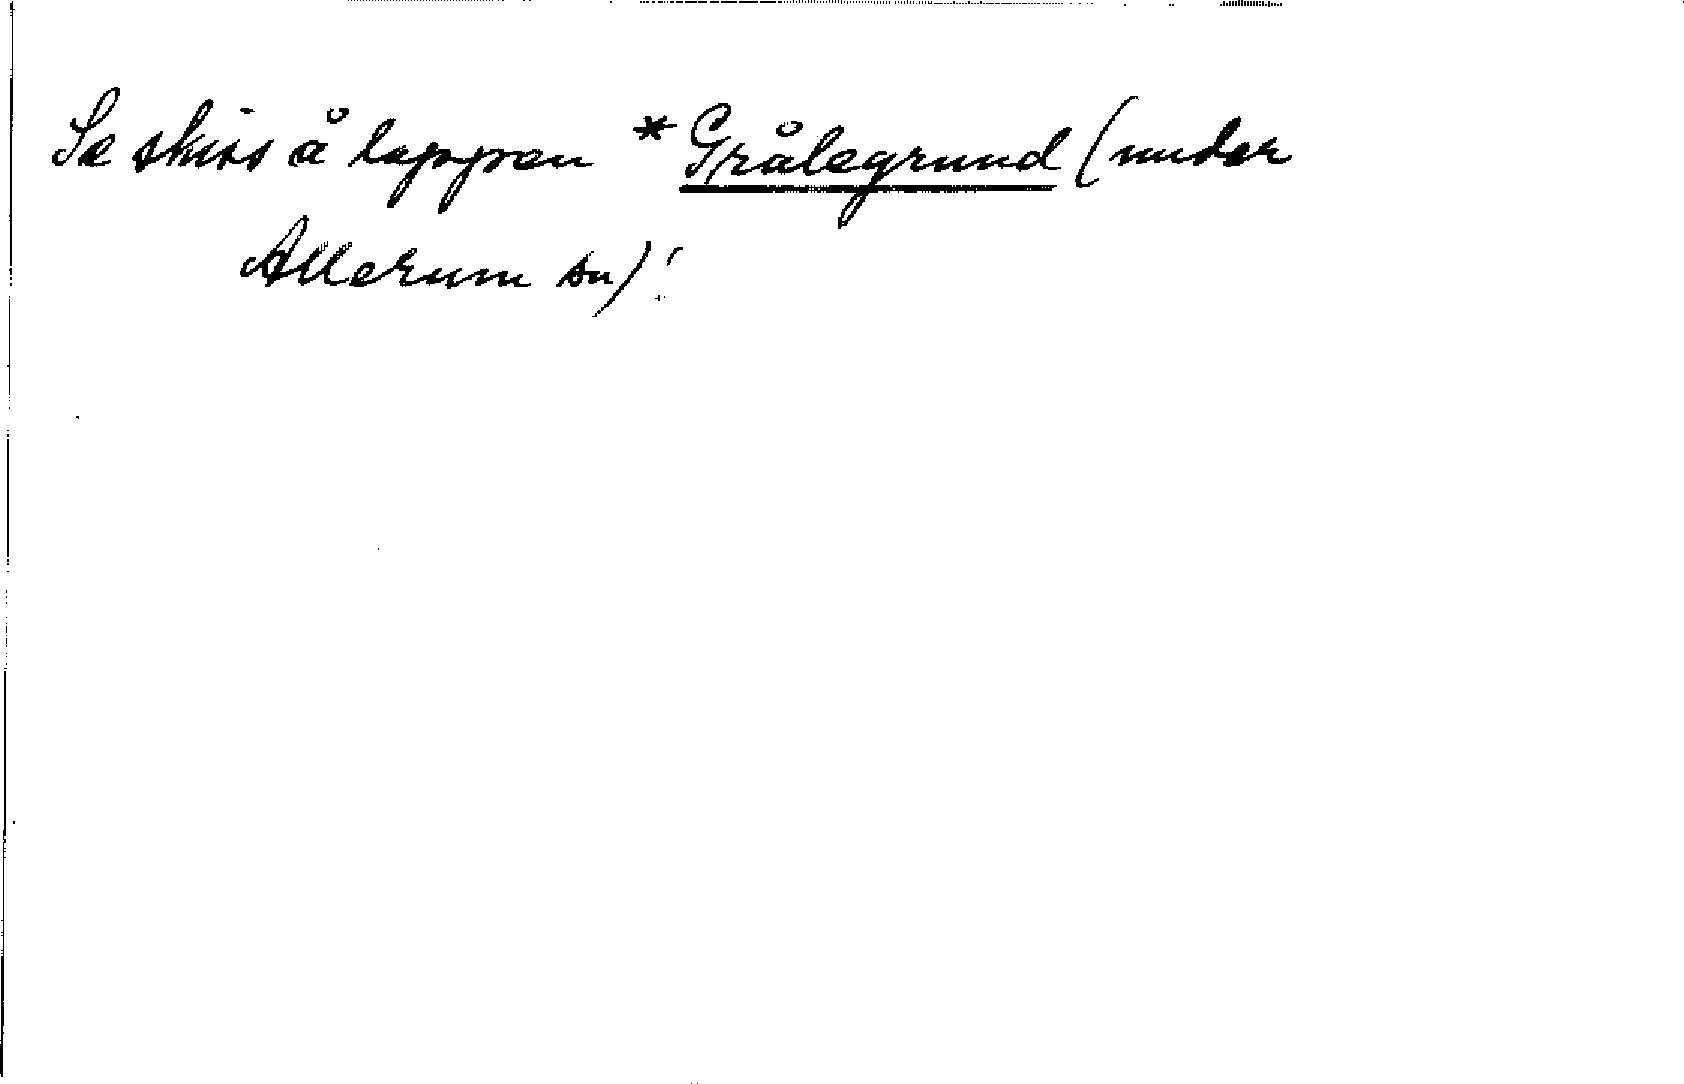 Se skiss å lappen *Grålegrund (under
Allerum sn)!